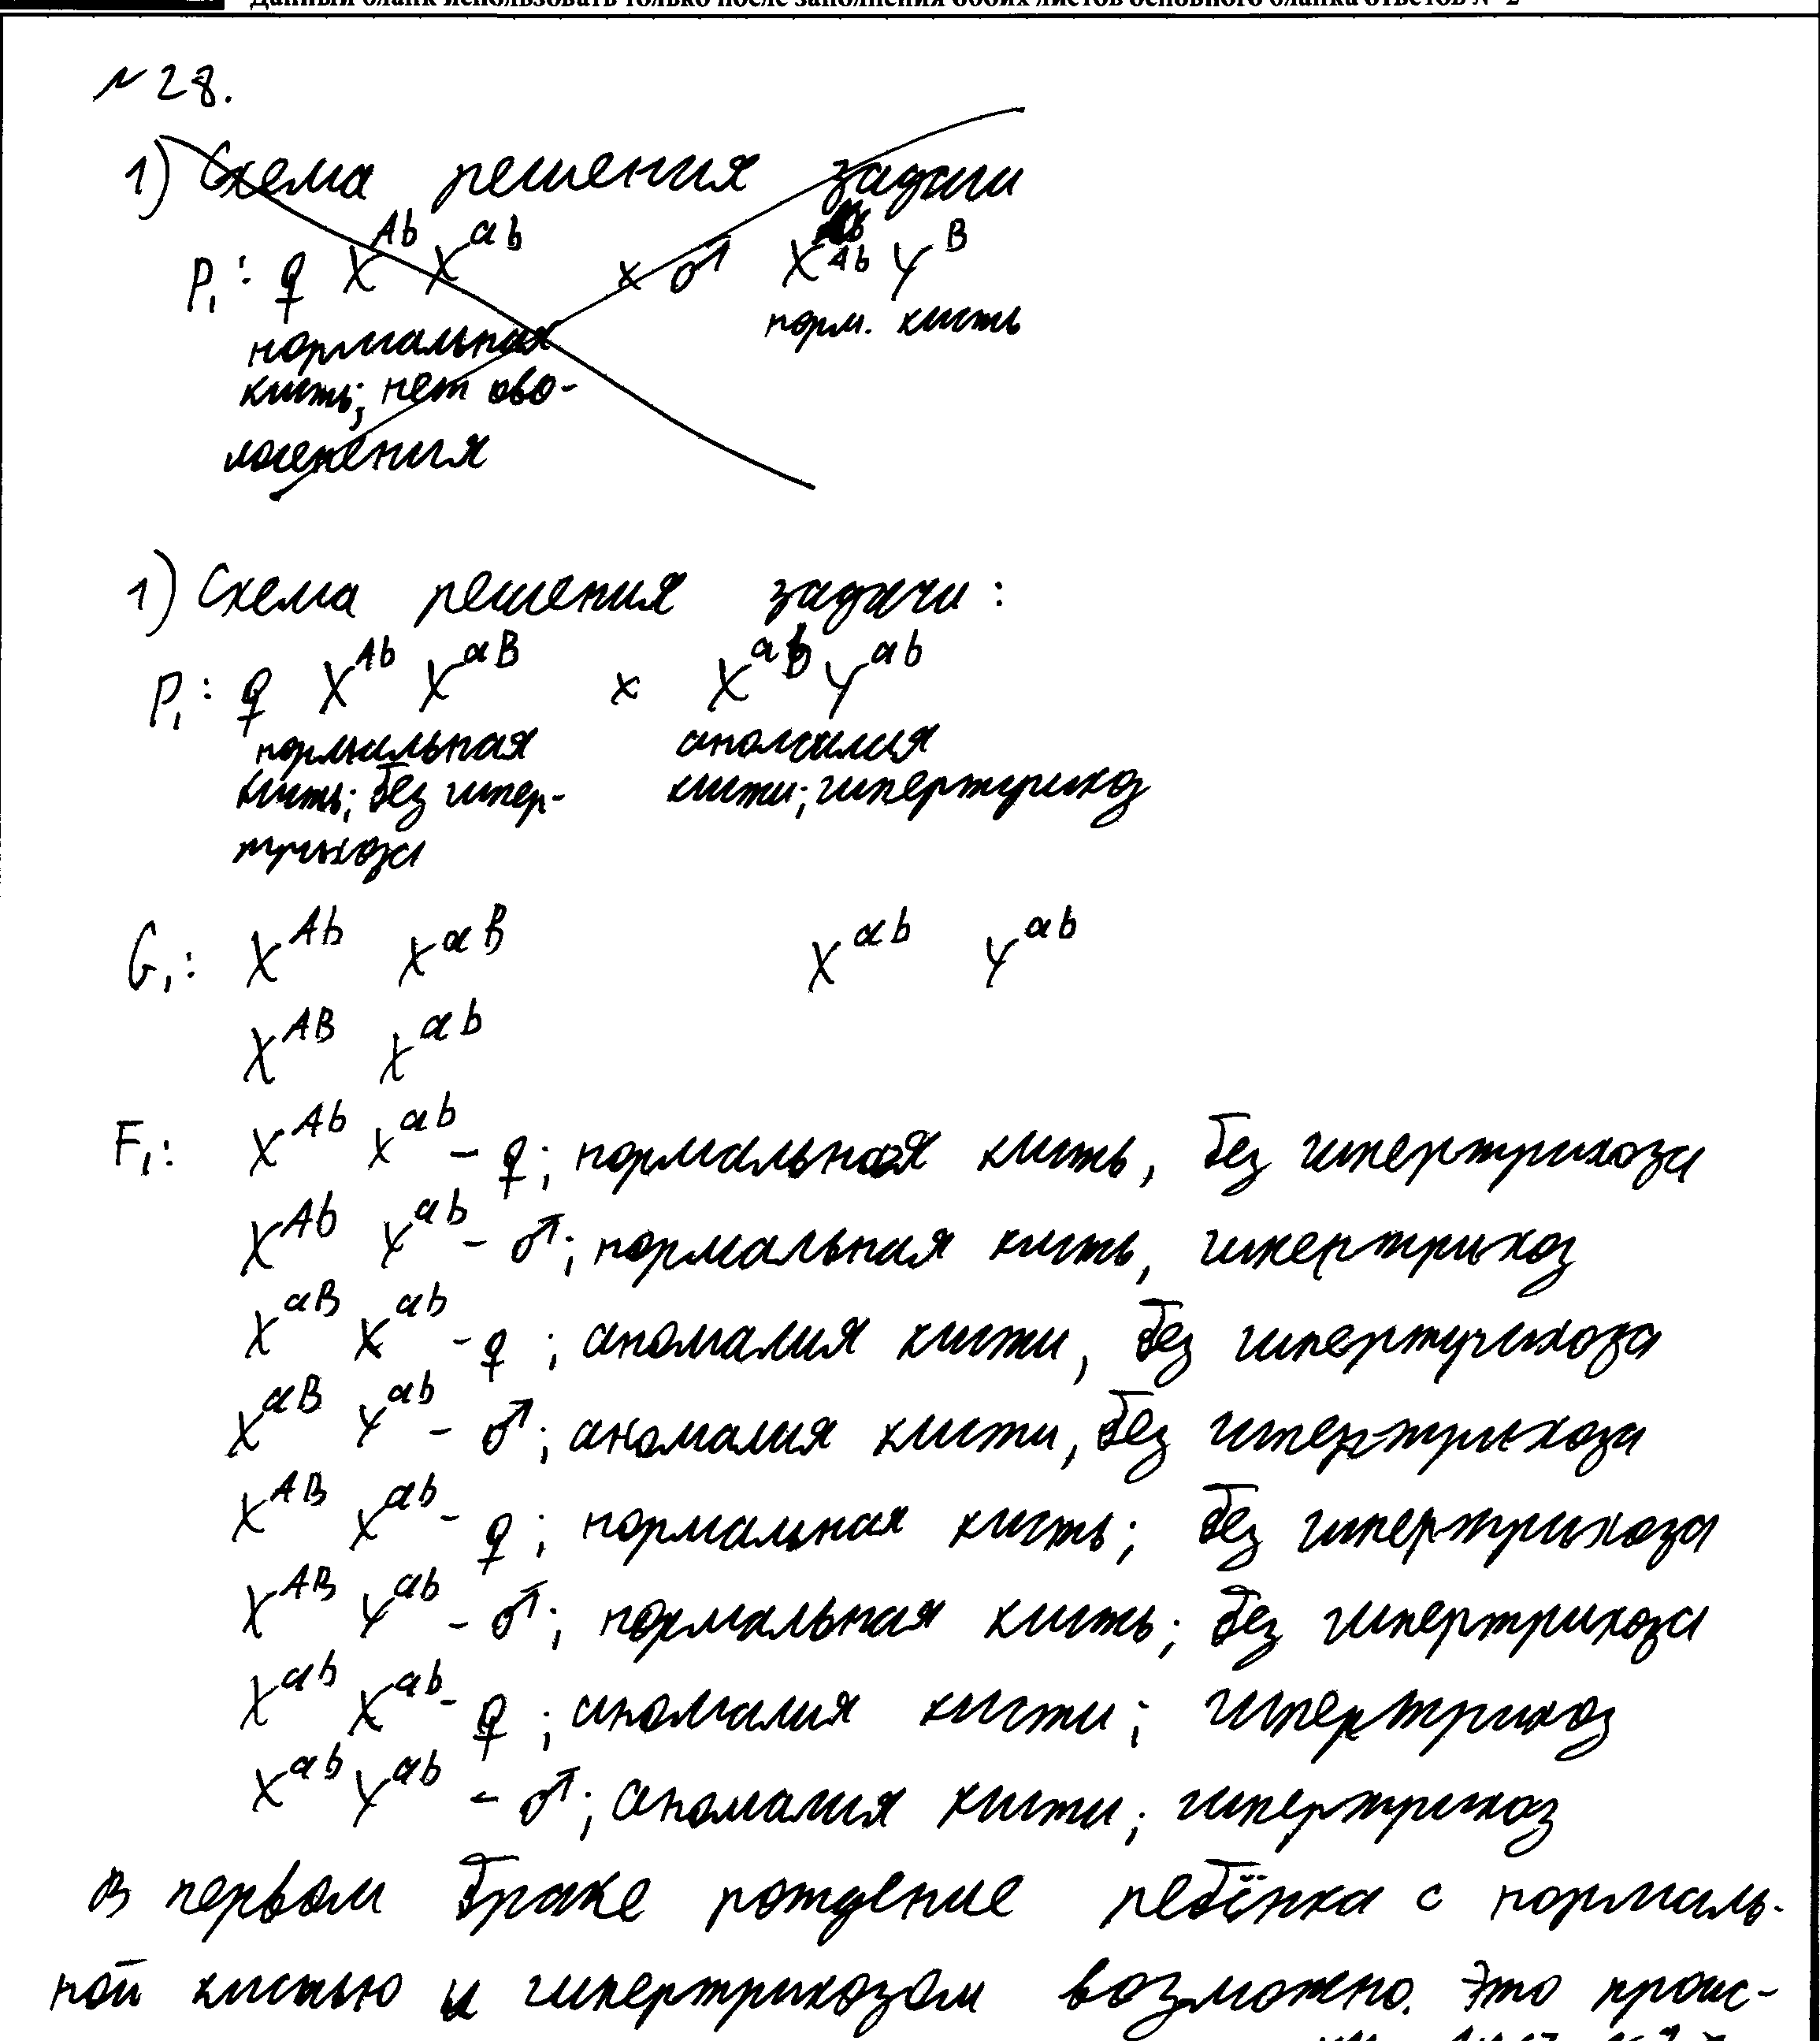 Данный бланк использовать только после заполнения обоих листов основного бланка ответов № 2
№ 28.
1) Схема решения задачи
P₁: ♀ X^Ab X^ab × ♂ X^Ab Y^B
нормальная норм. кисть
кисть; нет ово-
лосенения
1) Схема решения задачи:
P₁: ♀ X^Ab X^aB × X^ab Y^ab
нормальная аномалия
кисть; без гипер- кисти; гипертрихоз
трихоза
G₁: X^Ab X^aB X^ab Y^ab
X^AB X^ab
F₁: X^Ab X^ab – ♀; нормальная кисть, без гипертрихоза
X^Ab Y^ab – ♂; нормальная кисть, гипертрихоз
X^aB X^ab – ♀; аномалия кисти, без гипертрихоза
X^aB Y^ab – ♂; аномалия кисти, без гипертрихоза
X^AB X^ab – ♀; нормальная кисть; без гипертрихоза
X^AB Y^ab – ♂; нормальная кисть; без гипертрихоза
X^ab X^ab – ♀; аномалия кисти; гипертрихоз
X^ab Y^ab – ♂; аномалия кисти; гипертрихоз
В первом браке рождение ребёнка с нормаль-
ной кистью и гипертрихозом возможно. Это проис-